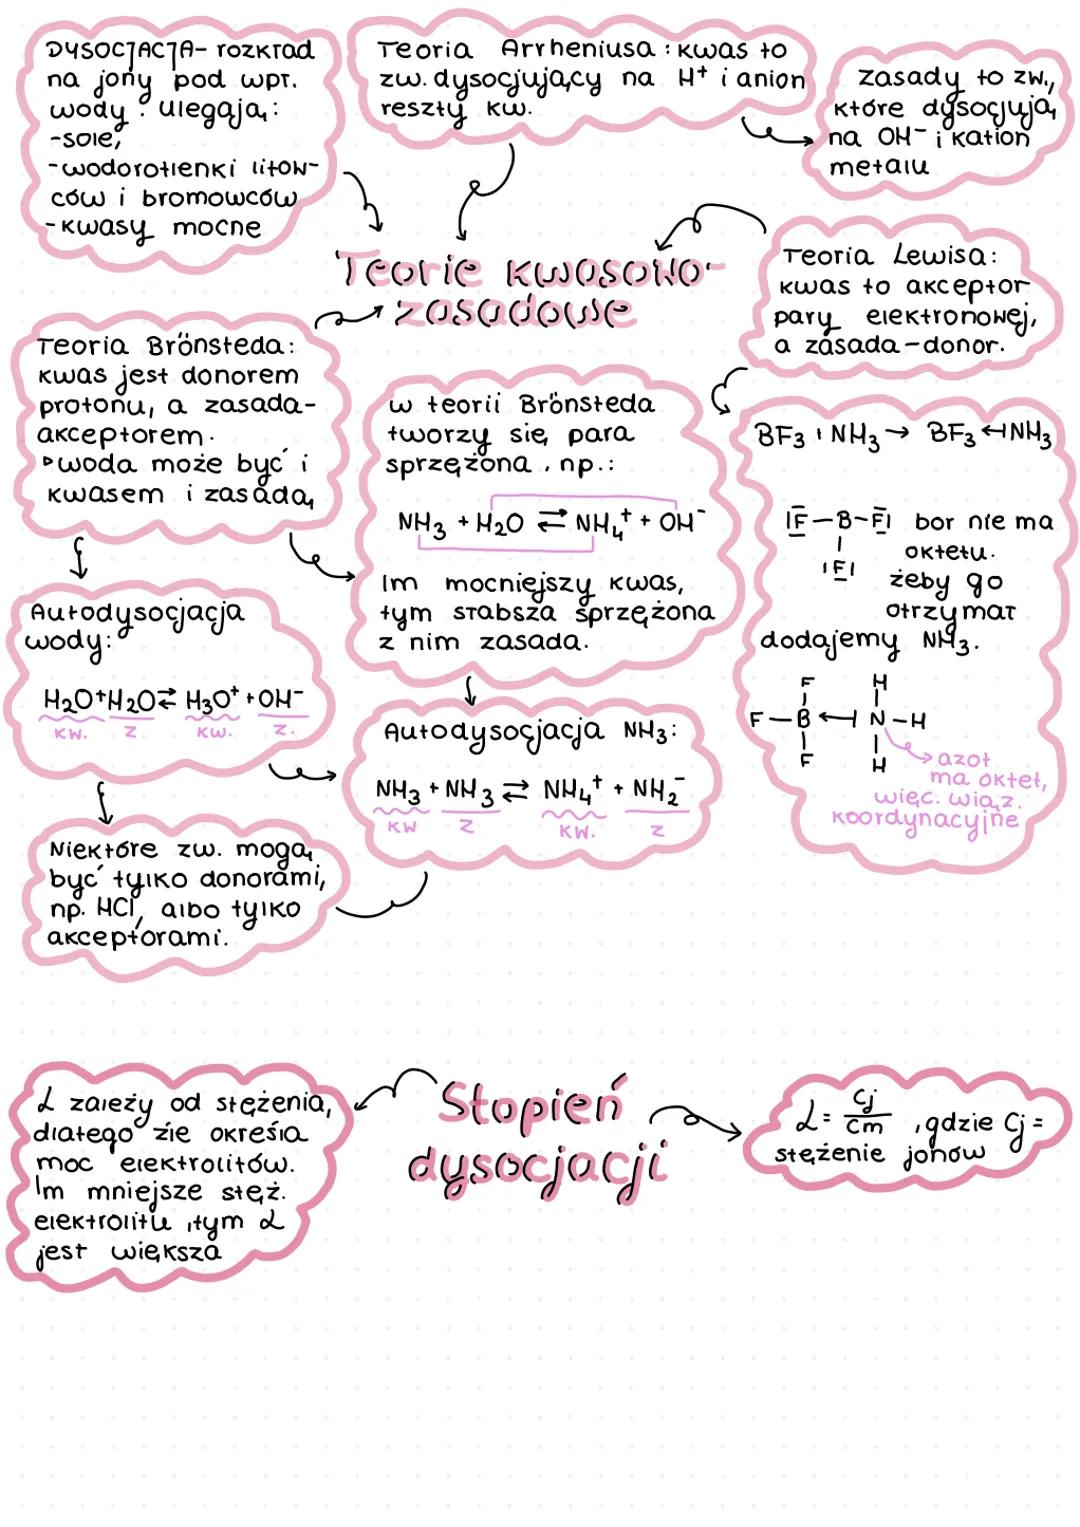 DYSOCJACJA- rozkład
na jony pod wpł.
wody. Ulegają:
-sole,
-wodorotlenki litow-
ców i bromowców
-kwasy mocne
Teoria Arrheniusa: kwas to
zw. dysocjujący na H⁺ i anion
reszty kw.
zasady to zw.,
które dysocjują
na OH⁻ i kation
metalu
Teorie kwasowo-
zasadowe
Teoria Lewisa:
kwas to akceptor
pary elektronowej,
a zasada-donor.
Teoria Brönsteda:
kwas jest donorem
protonu, a zasada-
akceptorem.
▹woda może być i
kwasem i zasadą
w teorii Brönsteda
tworzy się para
sprzężona, np.:
NH₃ + H₂O ⇄ NH₄⁺ + OH⁻
Im mocniejszy kwas,
tym słabsza sprzężona
z nim zasada.
BF₃ i NH₃ → BF₃ ← NH₃
|F̅—B—F̅| bor nie ma
| oktetu.
|F̲| żeby go
otrzymał
dodajemy NH₃.
F H
| |
F—B ← N-H
| |
F H
azot
ma oktet,
więc. wiąz.
koordynacyjne
Autodysocjacja
wody:
H₂O+H₂O⇄ H₃O⁺ + OH⁻
kw. z kw. z.
Autodysocjacja NH₃:
NH₃ + NH₃ ⇄ NH₄⁺ + NH₂⁻
kw z kw. z
Niektóre zw. mogą
być tylko donorami,
np. HCl, albo tylko
akceptorami.
Stopień
dysocjacji
α zależy od stężenia,
dlatego źle określa
moc elektrolitów.
Im mniejsze stęż.
elektrolitu, tym α
jest większa
α = Cj/Cm , gdzie Cj =
stężenie jonów